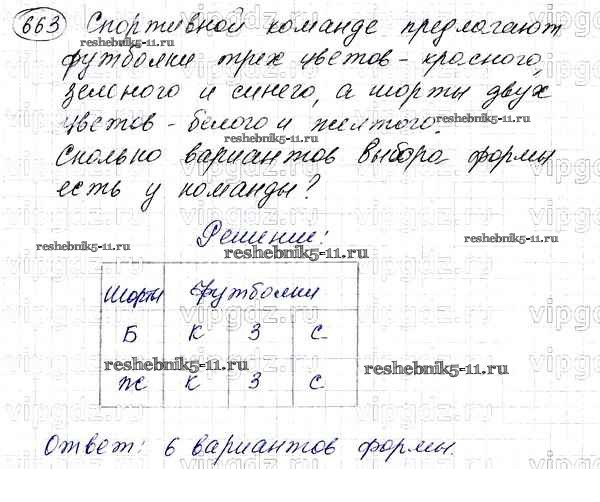 663 Спортивной команде предлагают
reshebnik5-11.ru
футболки трех цветов - красного,
зеленого и синего, а шорты двух
цветов - белого и желтого.
reshebnik5-11.ru
reshebnik5-11.ru
Сколько вариантов выбора формы
есть у команды?
Решение:
reshebnik5-11.ru
reshebnik5-11.ru
reshebnik5-11.ru
Шорты футболки
Б К З С
reshebnik5-11.ru
reshebnik5-11.ru
Ж К З С
Ответ: 6 вариантов формы.
vipgdz.ru